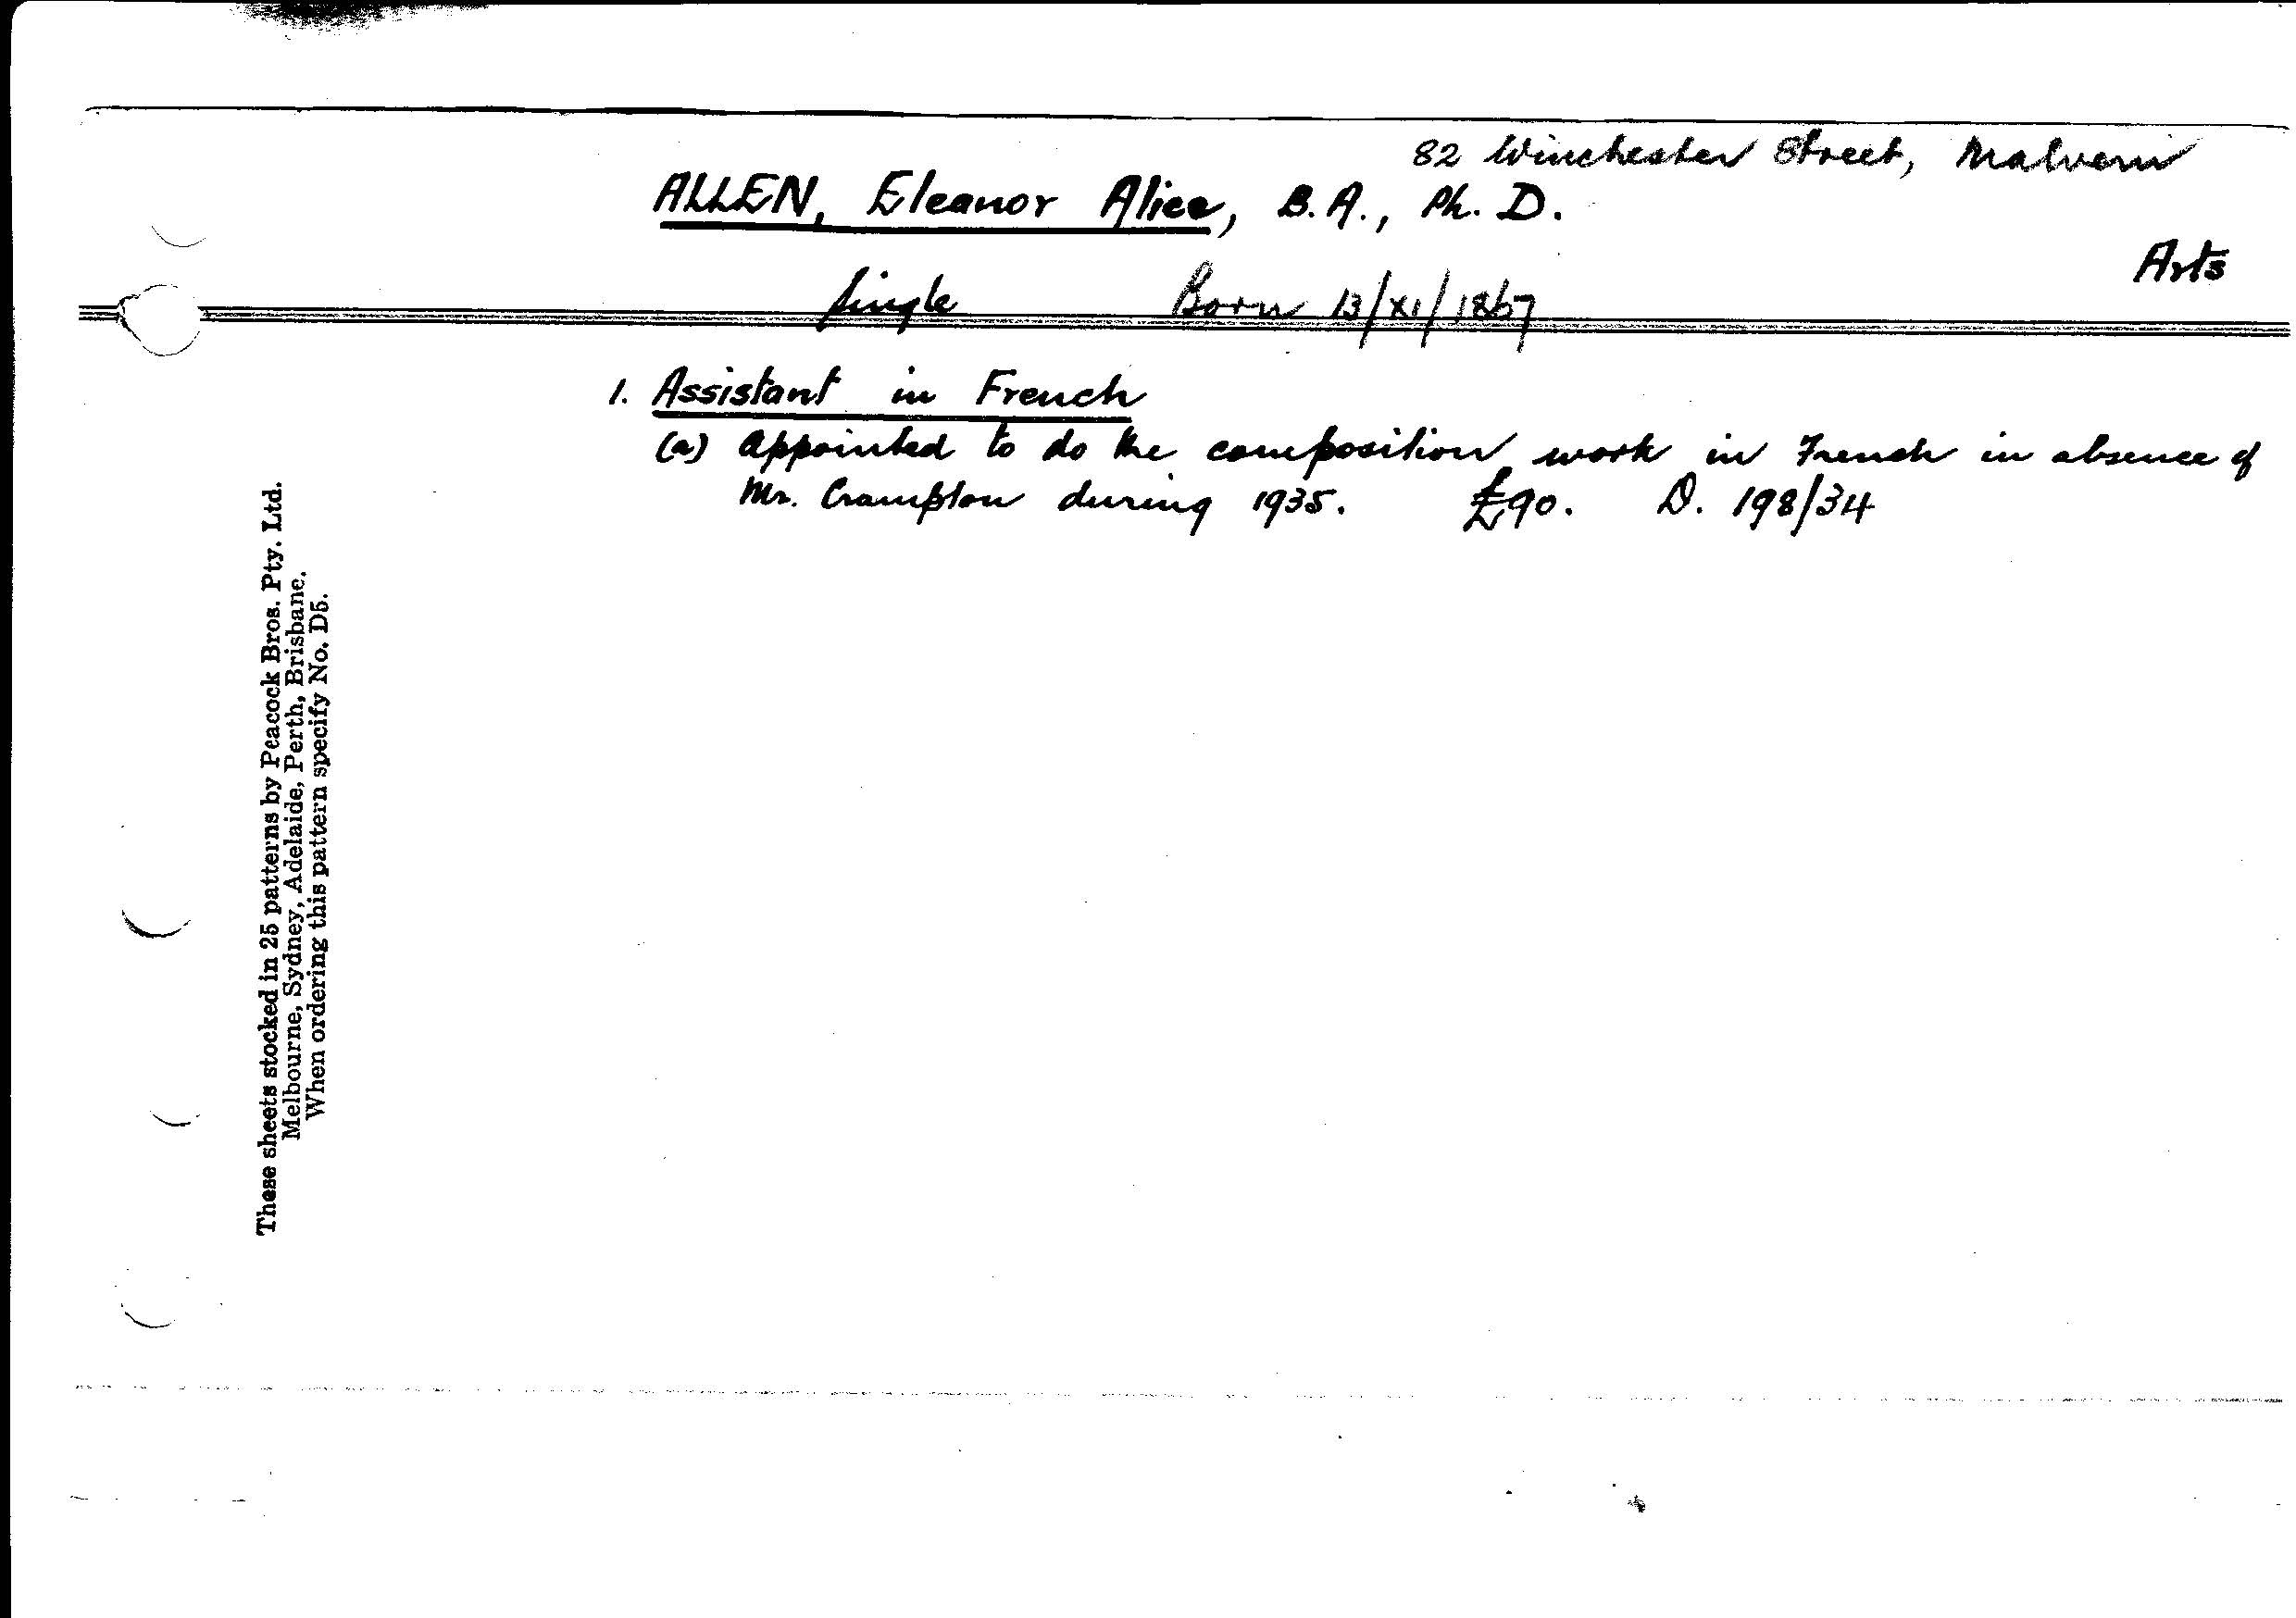 82 Winchester Street, Malvern
ALLEN, Eleanor Alice, B.A., Ph.D.
Arts
Single Born 13/XI/1867
1. Assistant in French
(a) Appointed to do the composition work in French in absence of
Mr. Crampton during 1935. £90. D. 198/34
These sheets stocked in 25 patterns by Peacock Bros. Pty. Ltd.
Melbourne, Sydney, Adelaide, Perth, Brisbane.
When ordering this pattern specify No. D5.